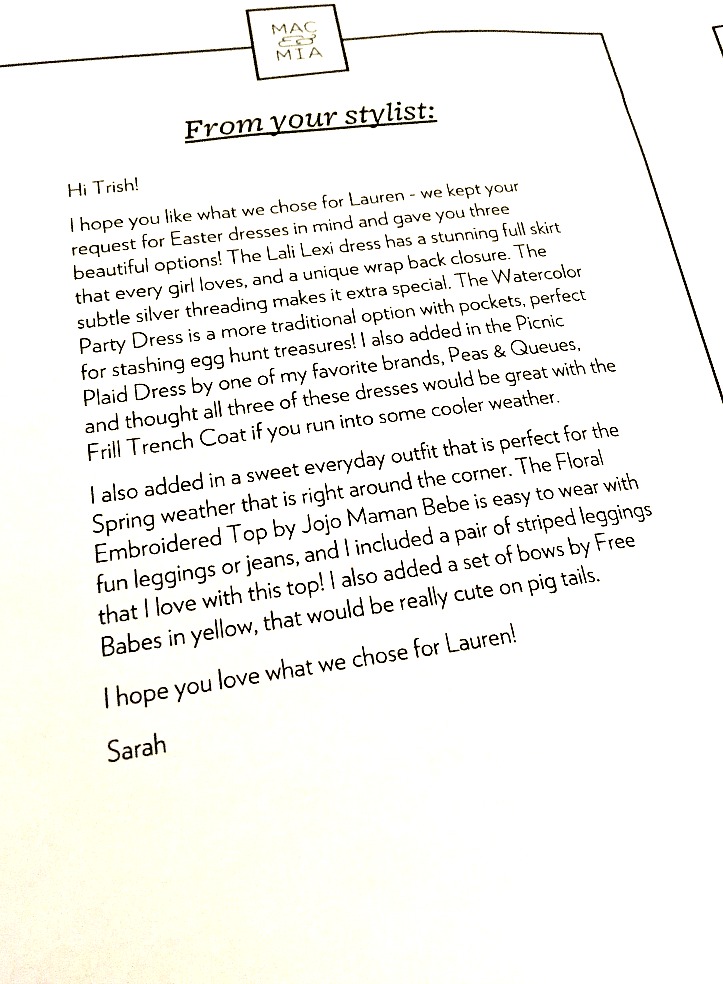 MAC
&
MIA
From your stylist:
Hi Trish!
I hope you like what we chose for Lauren - we kept your
request for Easter dresses in mind and gave you three
beautiful options! The Lali Lexi dress has a stunning full skirt
that every girl loves, and a unique wrap back closure. The
subtle silver threading makes it extra special. The Watercolor
Party Dress is a more traditional option with pockets, perfect
for stashing egg hunt treasures! I also added in the Picnic
Plaid Dress by one of my favorite brands, Peas & Queues,
and thought all three of these dresses would be great with the
Frill Trench Coat if you run into some cooler weather.
I also added in a sweet everyday outfit that is perfect for the
Spring weather that is right around the corner. The Floral
Embroidered Top by Jojo Maman Bebe is easy to wear with
fun leggings or jeans, and I included a pair of striped leggings
that I love with this top! I also added a set of bows by Free
Babes in yellow, that would be really cute on pig tails.
I hope you love what we chose for Lauren!
Sarah